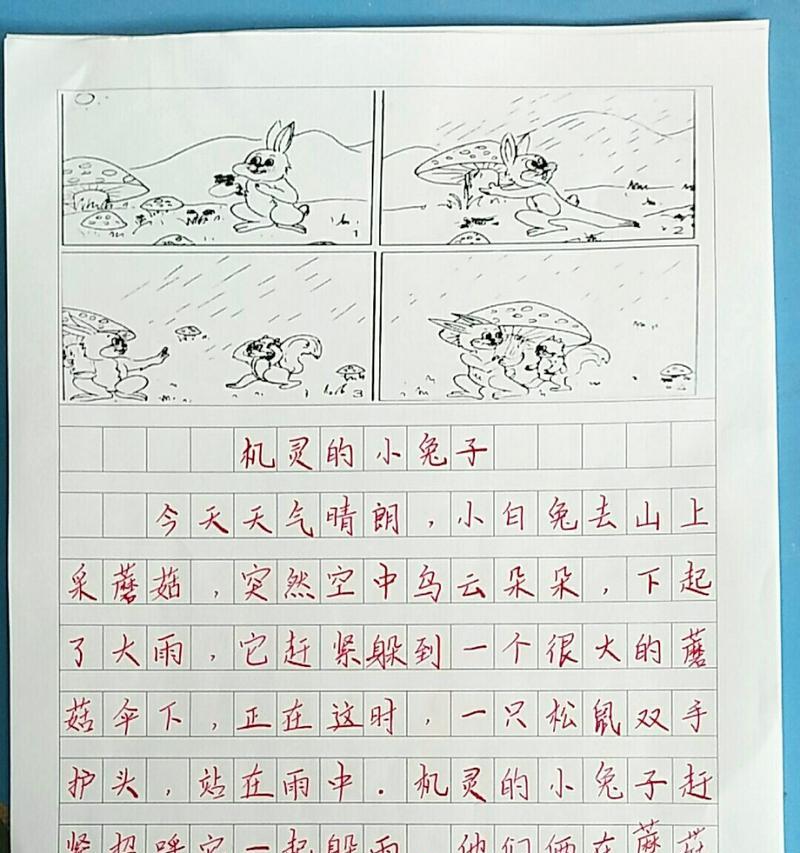 1
2
3
机灵的小兔子
今天天气晴朗,小白兔去山上
采蘑菇,突然空中乌云朵朵,下起
了大雨,它赶紧躲到一个很大的蘑
菇伞下,正在这时,一只松鼠双手
护头,站在雨中.机灵的小兔子赶
紧招呼它一起躲雨 他们俩在蘑菇